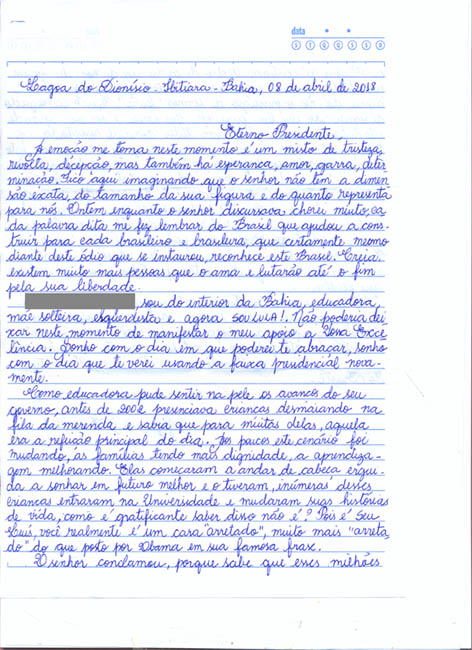 data
S T Q Q S S D
Lagoa do Dionísio - Ibitiara - Bahia, 08 de abril de 2018
Eterno Presidente,
A emoção me toma neste momento é um misto de tristeza,
revolta, decepção, mas também há esperança, amor, garra, deter
minação. Fico aqui imaginando que o senhor não tem a dimen
são exata, do tamanho da sua figura e do quanto representa
para nós. Ontem enquanto o senhor discursava chorei muito, ca
da palavra dita me fez lembrar do Brasil que ajudou a cons
truir para cada brasileiro e brasileira, que certamente mesmo
diante deste ódio que se instaurou, reconhece este Brasil. Creia,
existem muito mais pessoas que o ama e lutarão até o fim
pela sua liberdade.
, sou do interior da Bahia, educadora,
mãe solteira, esquerdista e agora SOU LULA!. Não poderia dei
xar neste momento de manifestar o meu apoio a Vossa Exce
lência. Sonho com o dia em que poderei te abraçar, sonho
com o dia que te verei usando a faixa presidencial nova-
mente.
Como educadora pude sentir na pele os avanços do seu
governo, antes de 2002 presenciava crianças desmaiando na
fila da merenda e sabia que para muitas delas, aquela
era a refeição principal do dia. Aos poucos este cenário foi
mudando, as famílias tendo mais dignidade, a aprendiza-
gem melhorando. Elas começaram a andar de cabeça ergui-
da a sonhar em futuro melhor e o tiveram, inúmeras desses
crianças entraram na Universidade e mudaram suas histórias
de vida, como é gratificante saber disso não é? Pois é Seu
Luis, você realmente é um casa "arretado", muito mais "arreta
do" do que posto por Obama em sua famosa frase.
O senhor conclamou, porque sabe que esses milhões